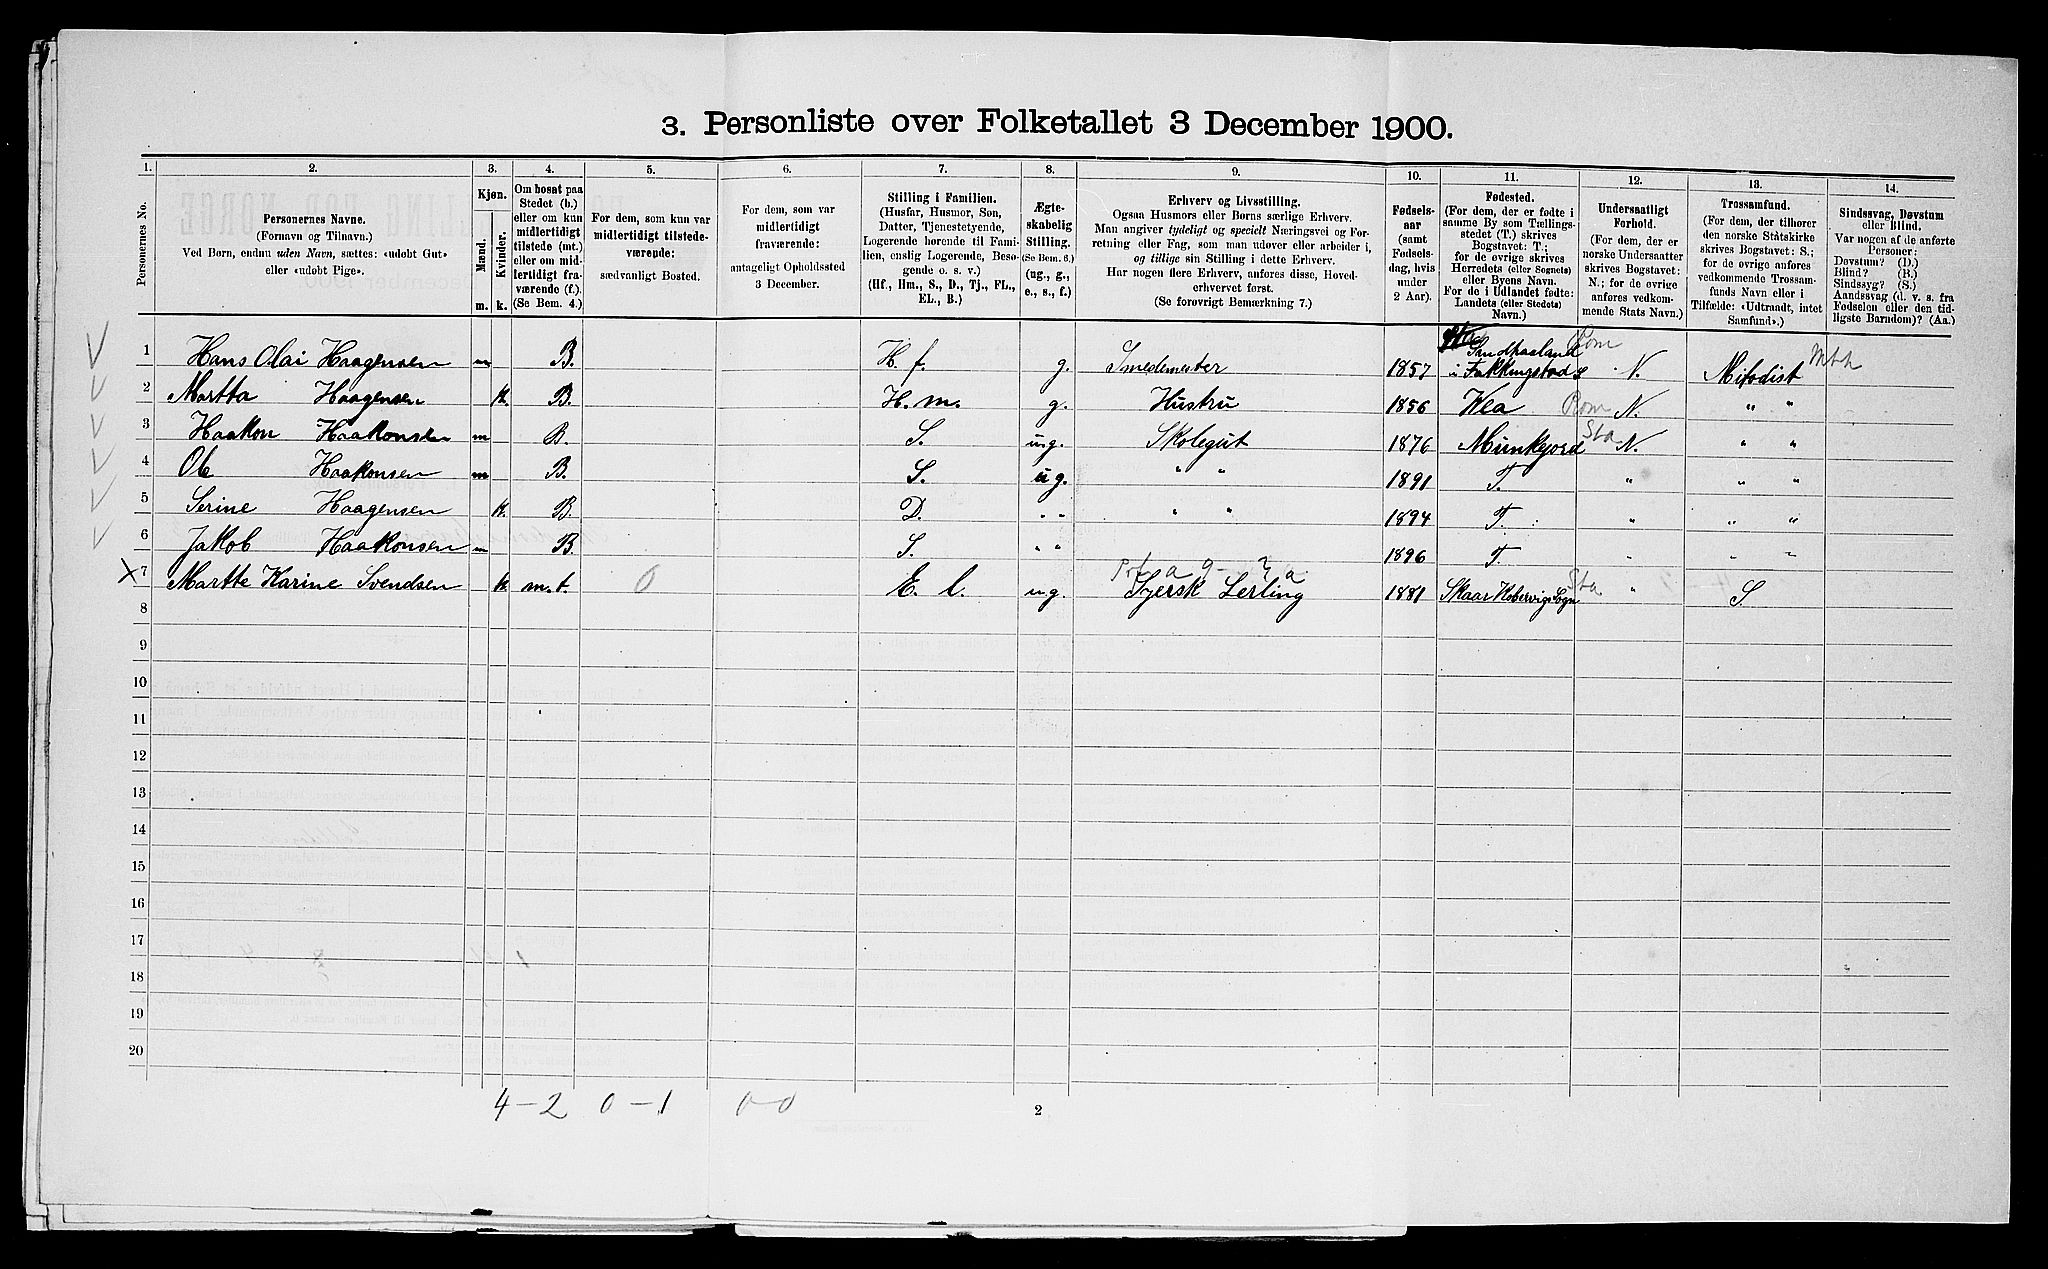 3. Personliste over Folketallet 3 December 1900.
1. 2. 3. 4. 5. 6. 7. 8. 9. 10. 11. 12. 13. 14.
Personernes No.
Personernes Navne.
(Fornavn og Tilnavn.)
Ved Børn, endnu uden Navn, sættes: «udobt Gut»
eller «udobt Pige».
Kjøn.
Mænd. Kvinder.
m. k.
Om bosat paa
Stedet (b.)
eller om kun
midlertidigt
tilstede (mt.)
eller om mid-
lertidigt fra-
værende (f.).
(Se Bem. 4.)
For dem, som kun var
midlertidigt tilstede-
værende:
sædvanligt Bosted.
For dem, som var
midlertidigt
fraværende:
antageligt Opholdssted
3 December.
Stilling i Familien.
(Husfar, Husmor, Søn,
Datter, Tjenestetyende,
Logerende hørende til Fami-
lien, enslig Logerende, Besø-
gende o. s. v.)
(Hf., Hm., S., D., Tj., FL.,
EL., B.)
Ægte-
skabelig
Stilling.
(Se Bem. 6.)
(ug., g.,
e., s., f.)
Erhverv og Livsstilling.
Ogsaa Husmors eller Børns særlige Erhverv.
Man angiver tydeligt og specielt Næringsvei og For-
retning eller Fag, som man udøver eller arbeider i,
og tillige sin Stilling i dette Erhverv.
Har nogen flere Erhverv, anføres disse, Hoved-
erhvervet først.
(Se forøvrigt Bemærkning 7.)
Fødsels-
aar
(samt
Fødsels-
dag, hvis
under
2 Aar).
Fødested.
(For dem, der er fødte i
samme By som Tællings-
stedet (T.) skrives
Bogstavet: T.;
for de øvrige skrives
Herredets (eller Sognets)
eller Byens Navn.
For de i Udlandet fødte:
Landets (eller Stedets)
Navn.)
Undersaatligt
Forhold.
(For dem, der er
norske Undersaatter
skrives Bogstavet:
N.; for de øvrige
anføres vedkom-
mende Stats Navn.)
Trossamfund.
(For dem, der tilhører
den norske Statskirke
skrives Bogstavet: S.;
for de øvrige anføres
vedkommende Trossam-
funds Navn eller i
Tilfælde: «Udtraadt, intet
Samfund».)
Sindssvag, Døvstum
eller Blind.
Var nogen af de anførte
Personer:
Døvstum? (D.)
Blind? (B.)
Sindssyg? (S.)
Aandssvag (d. v. s. fra
Fødselen eller den tid-
ligste Barndom)? (Aa.)
1 Hans Olai Haagensen m B. H. f. g. Smedemester 1857 Sandhaaland i Fakkingstad S Rom N. Mitodist Mth
2 Martta Haagensen k. B. H. m. g. Hustru 1856 Wea Rom N. " "
3 Haakon Haakonsen m B. S. u.g. Skolegut 1876 Munkejord Sta N. " "
4 Ole Haakonsen m B. S. u g. " " 1891 T. " " "
5 Serine Haagensen k. B. D. " " " " 1894 T. " " "
6 Jakob Haakonsen m B. S. " " 1896 T. " " "
X 7 Martte Karine Svendsen k m.t. 0 E. l. u.g. Syersk Lerling 1881 Skaar Hobervig Sogn Sta " S.
8
9
10
11
12
13
14
15
16
17
18
19
20
4 - 2 0 - 1 0 - 0
2